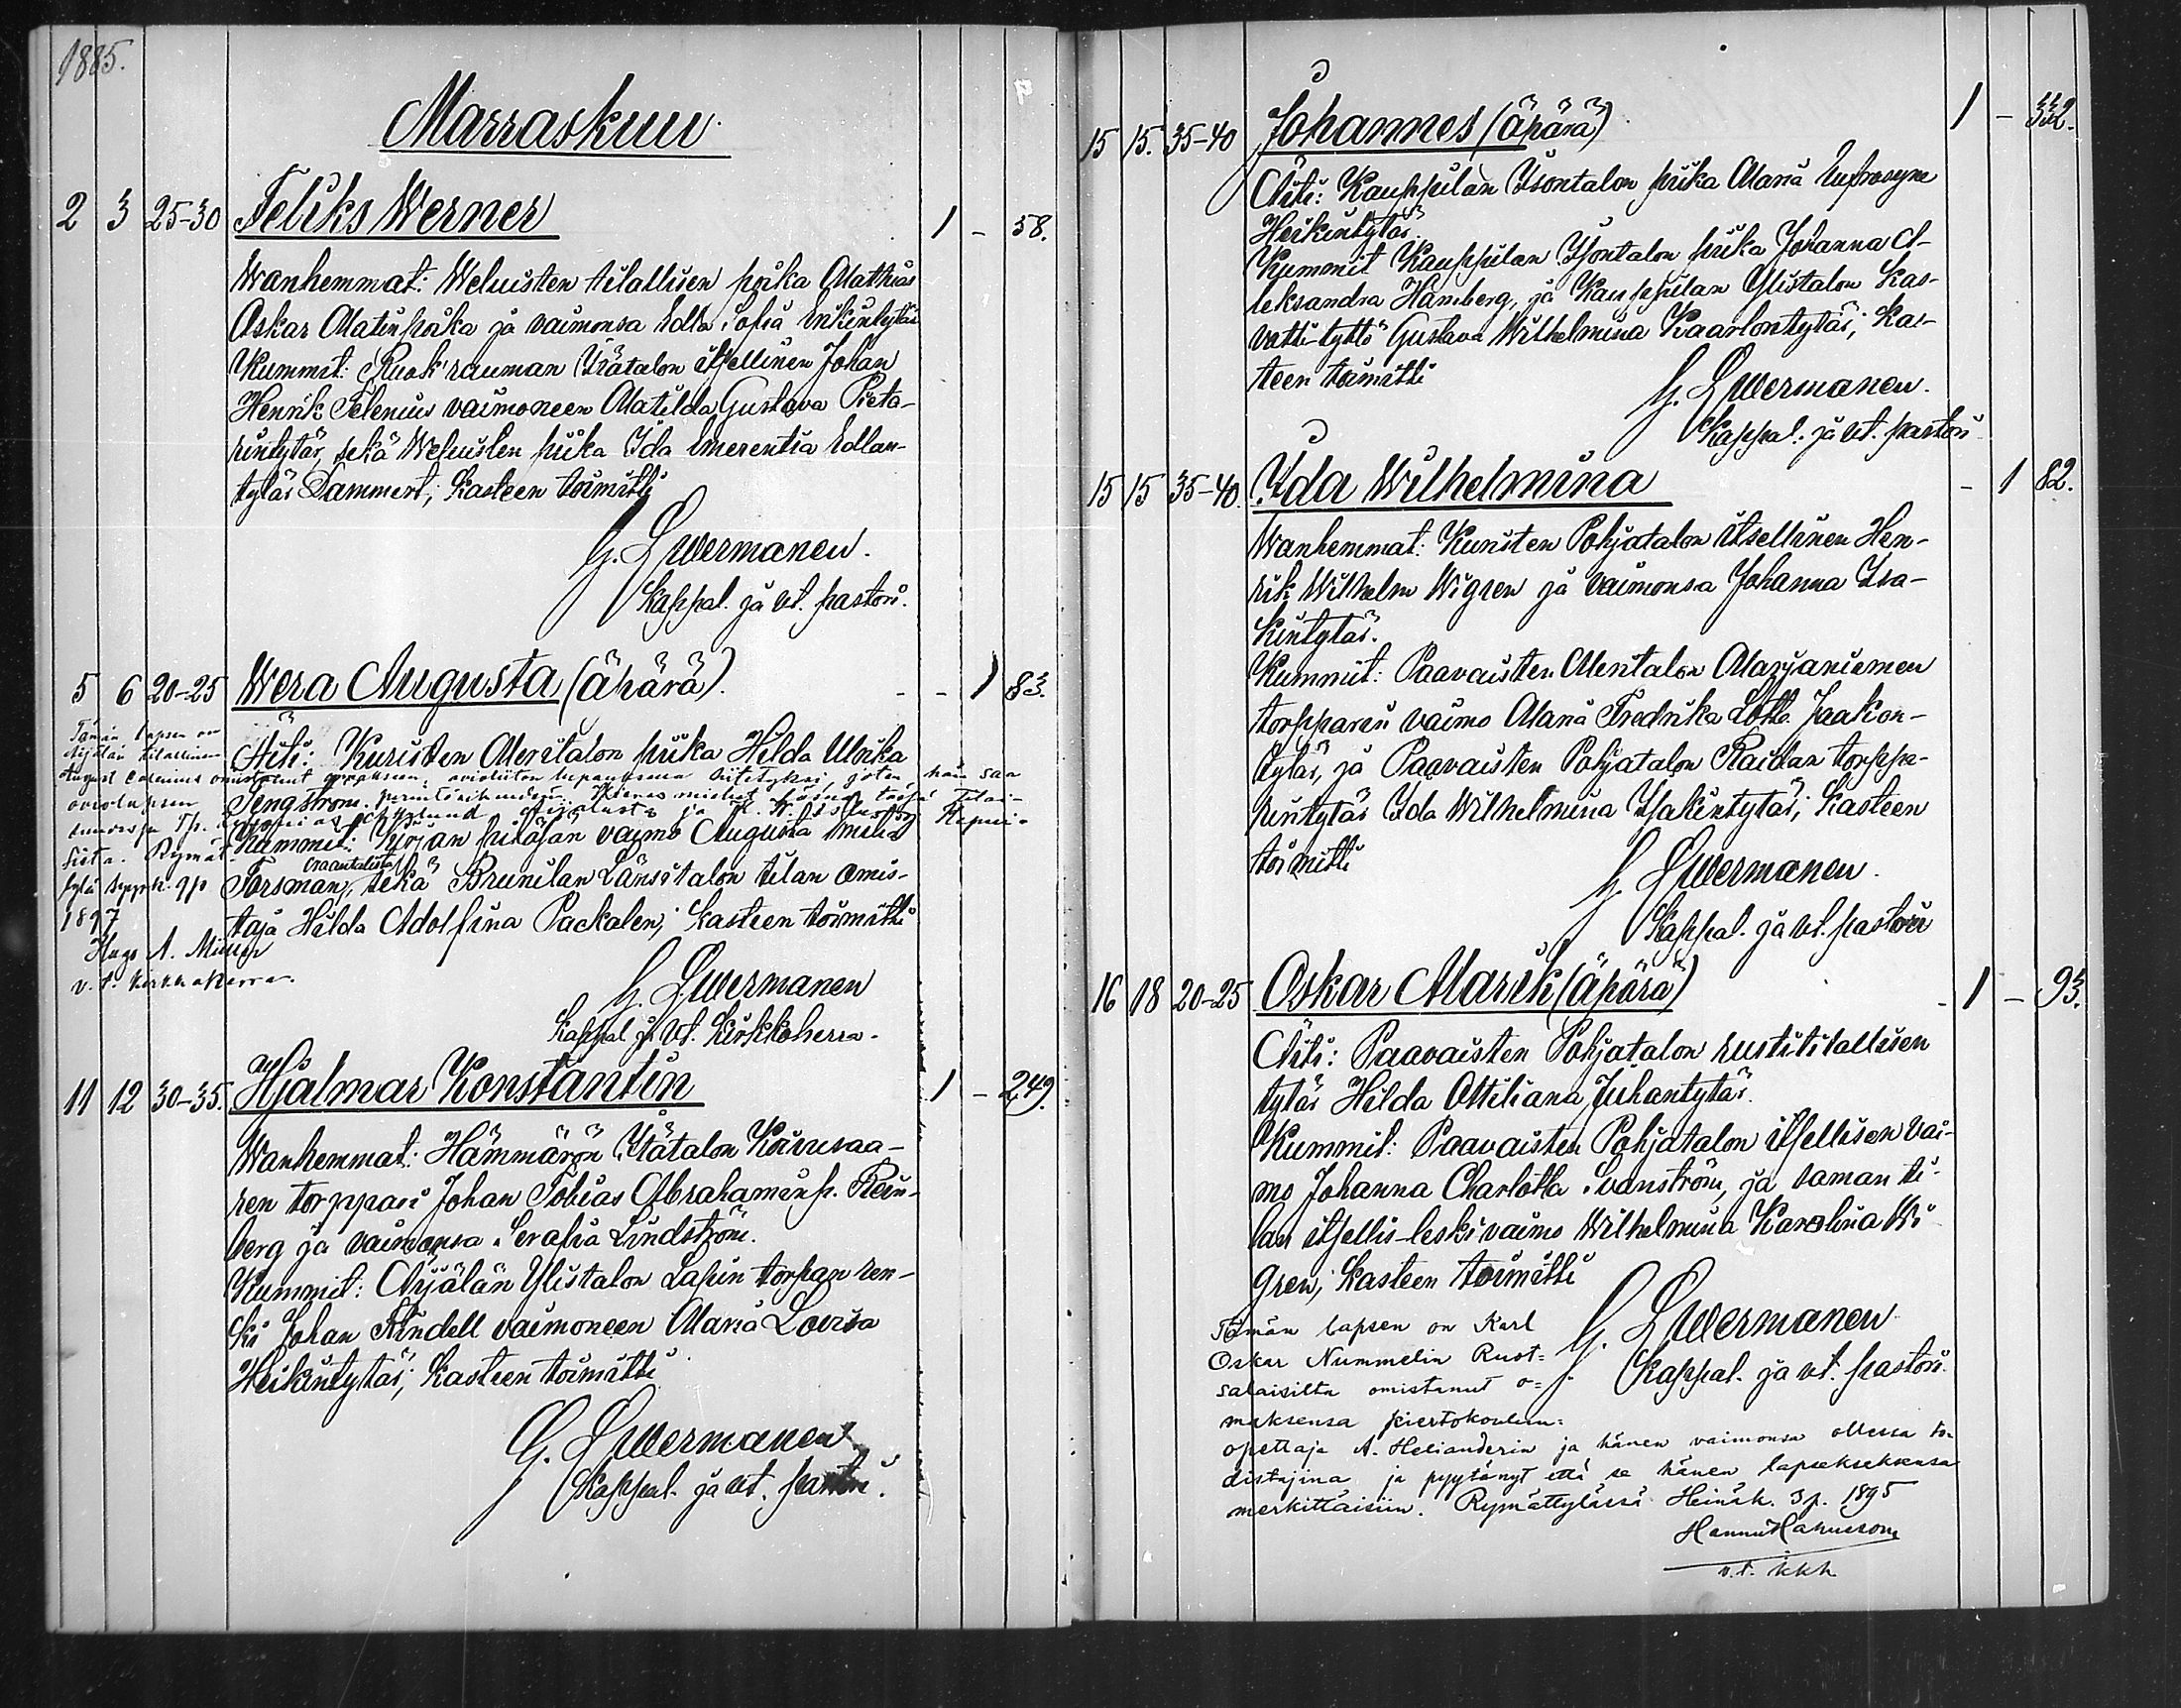 1885.
Marraskuu.
2 3 25-30 Feliks Werner 1 - 58.
Wanhemmat: Weluisten tilallisen poika Mathias
Oskar Matinpoika ja vaimonsa Edla Sofia Erikintytär
Kummit: Ruokrauman Itätalon itsellinen Johan
Henrik Felenius vaimoneen Matilda Gustava Pieta-
rintytär, sekä Weluisten piika Ida Emerentia Edlan-
tytär Dammert; Kasteen toimitti
G. Lwermanen.
Kappal. ja vt. pastori.
5 6 20-25 Wera Augusta (äpärä). - - 1 83.
Tämän lapsen on
tilallinen
Äiti: Kuristen Meritalon piika Hilda Ulrika
August omistanut avioliiton siitetyksi, joten hän saa
aviolapsen Tengström.
Kummit: Kirjan pitäjän vaimo Augusta
Rymät-
tylä syysk. 9 p
Naantalista
Forsman, sekä Brunilan Länsitalon tilan omis-
1897
taja Hilda Adolfina Packalen; kasteen toimitti
Hugo A.
v. t. kirkkoherra.
G. Lwermanen
Kappal ja vt. Kirkkoherra.
11 12 30-35. Hjalmar Konstantin 1 - 249.
Wanhemmat: Hämmärön Itätalon Koivusaa-
ren torppari Johan Tobias Abrahaminp. Rein-
berg ja vaimonsa Serafia Lindström.
Kummit: Äijälän Ylistalon Lapin torpan ren-
ki Johan Rindell vaimoneen Maria Lovisa
Heikintytär; Kasteen toimitti
G. Lwermanen
Kappal. ja vt. pastori.
15 15. 35-40 Johannes (äpärä) 1 - 332.
Äiti: Kauppilan Isontalon piika Maria Eufrosyne
Heikintytär.
Kummit Kauppilan Isontalon piika Johanna A-
leksandra Hamberg, ja Kauppilan Ylistalon Kas-
vatti-tyttö Gustava Wilhelmina Kaarlontytär; Kas-
teen toimitti
G. Lwermanen.
Kappal. ja vt. pastori
15 15 35-40. Ida Wilhelmina - 1 82.
Wanhemmat: Kuristen Pohjatalon itsellinen Hen-
rik Wilhelm Wigren ja vaimonsa Johanna Isa-
kintytär.
Kummit: Paavaisten Meritalon Marjaniemen
torpparin vaimo Maria Fredrika Lotta Jaakon-
tytär, ja Paavaisten Pohjatalon Raidan torppa-
rintytär Ida Wilhelmina Isakintytär; Kasteen
toimitti
G. Lwermanen.
Kappal. ja vt. pastori
16 18 20-25 Oskar Marik (äpärä) - 1 - 93.
Äiti: Paavaisten Pohjatalon rustitilallisen
tytär Hilda Ottiliana Juhantytär.
Kummit: Paavaisten Pohjatalon itsellisen vai-
mo Johanna Charlotta Svanström, ja saman ti-
lan itsellis-leskivaimo Wilhelmina Karolina Wi-
gren; Kasteen toimitti
G. Lwermanen
Kappal. ja vt. pastori.
Tämän lapsen on Karl
Oskar Nummelin Rust-
salaisilta omistanut o-
maksensa kiertokoulun-
opettaja A. Helianderin ja hänen vaimonsa ollessa to-
distajina ja pyytänyt että se hänen lapseksensa
merkittäisiin. Rymättylässä Heinäk. 3 p. 1895
Hannu
v.t. kkh